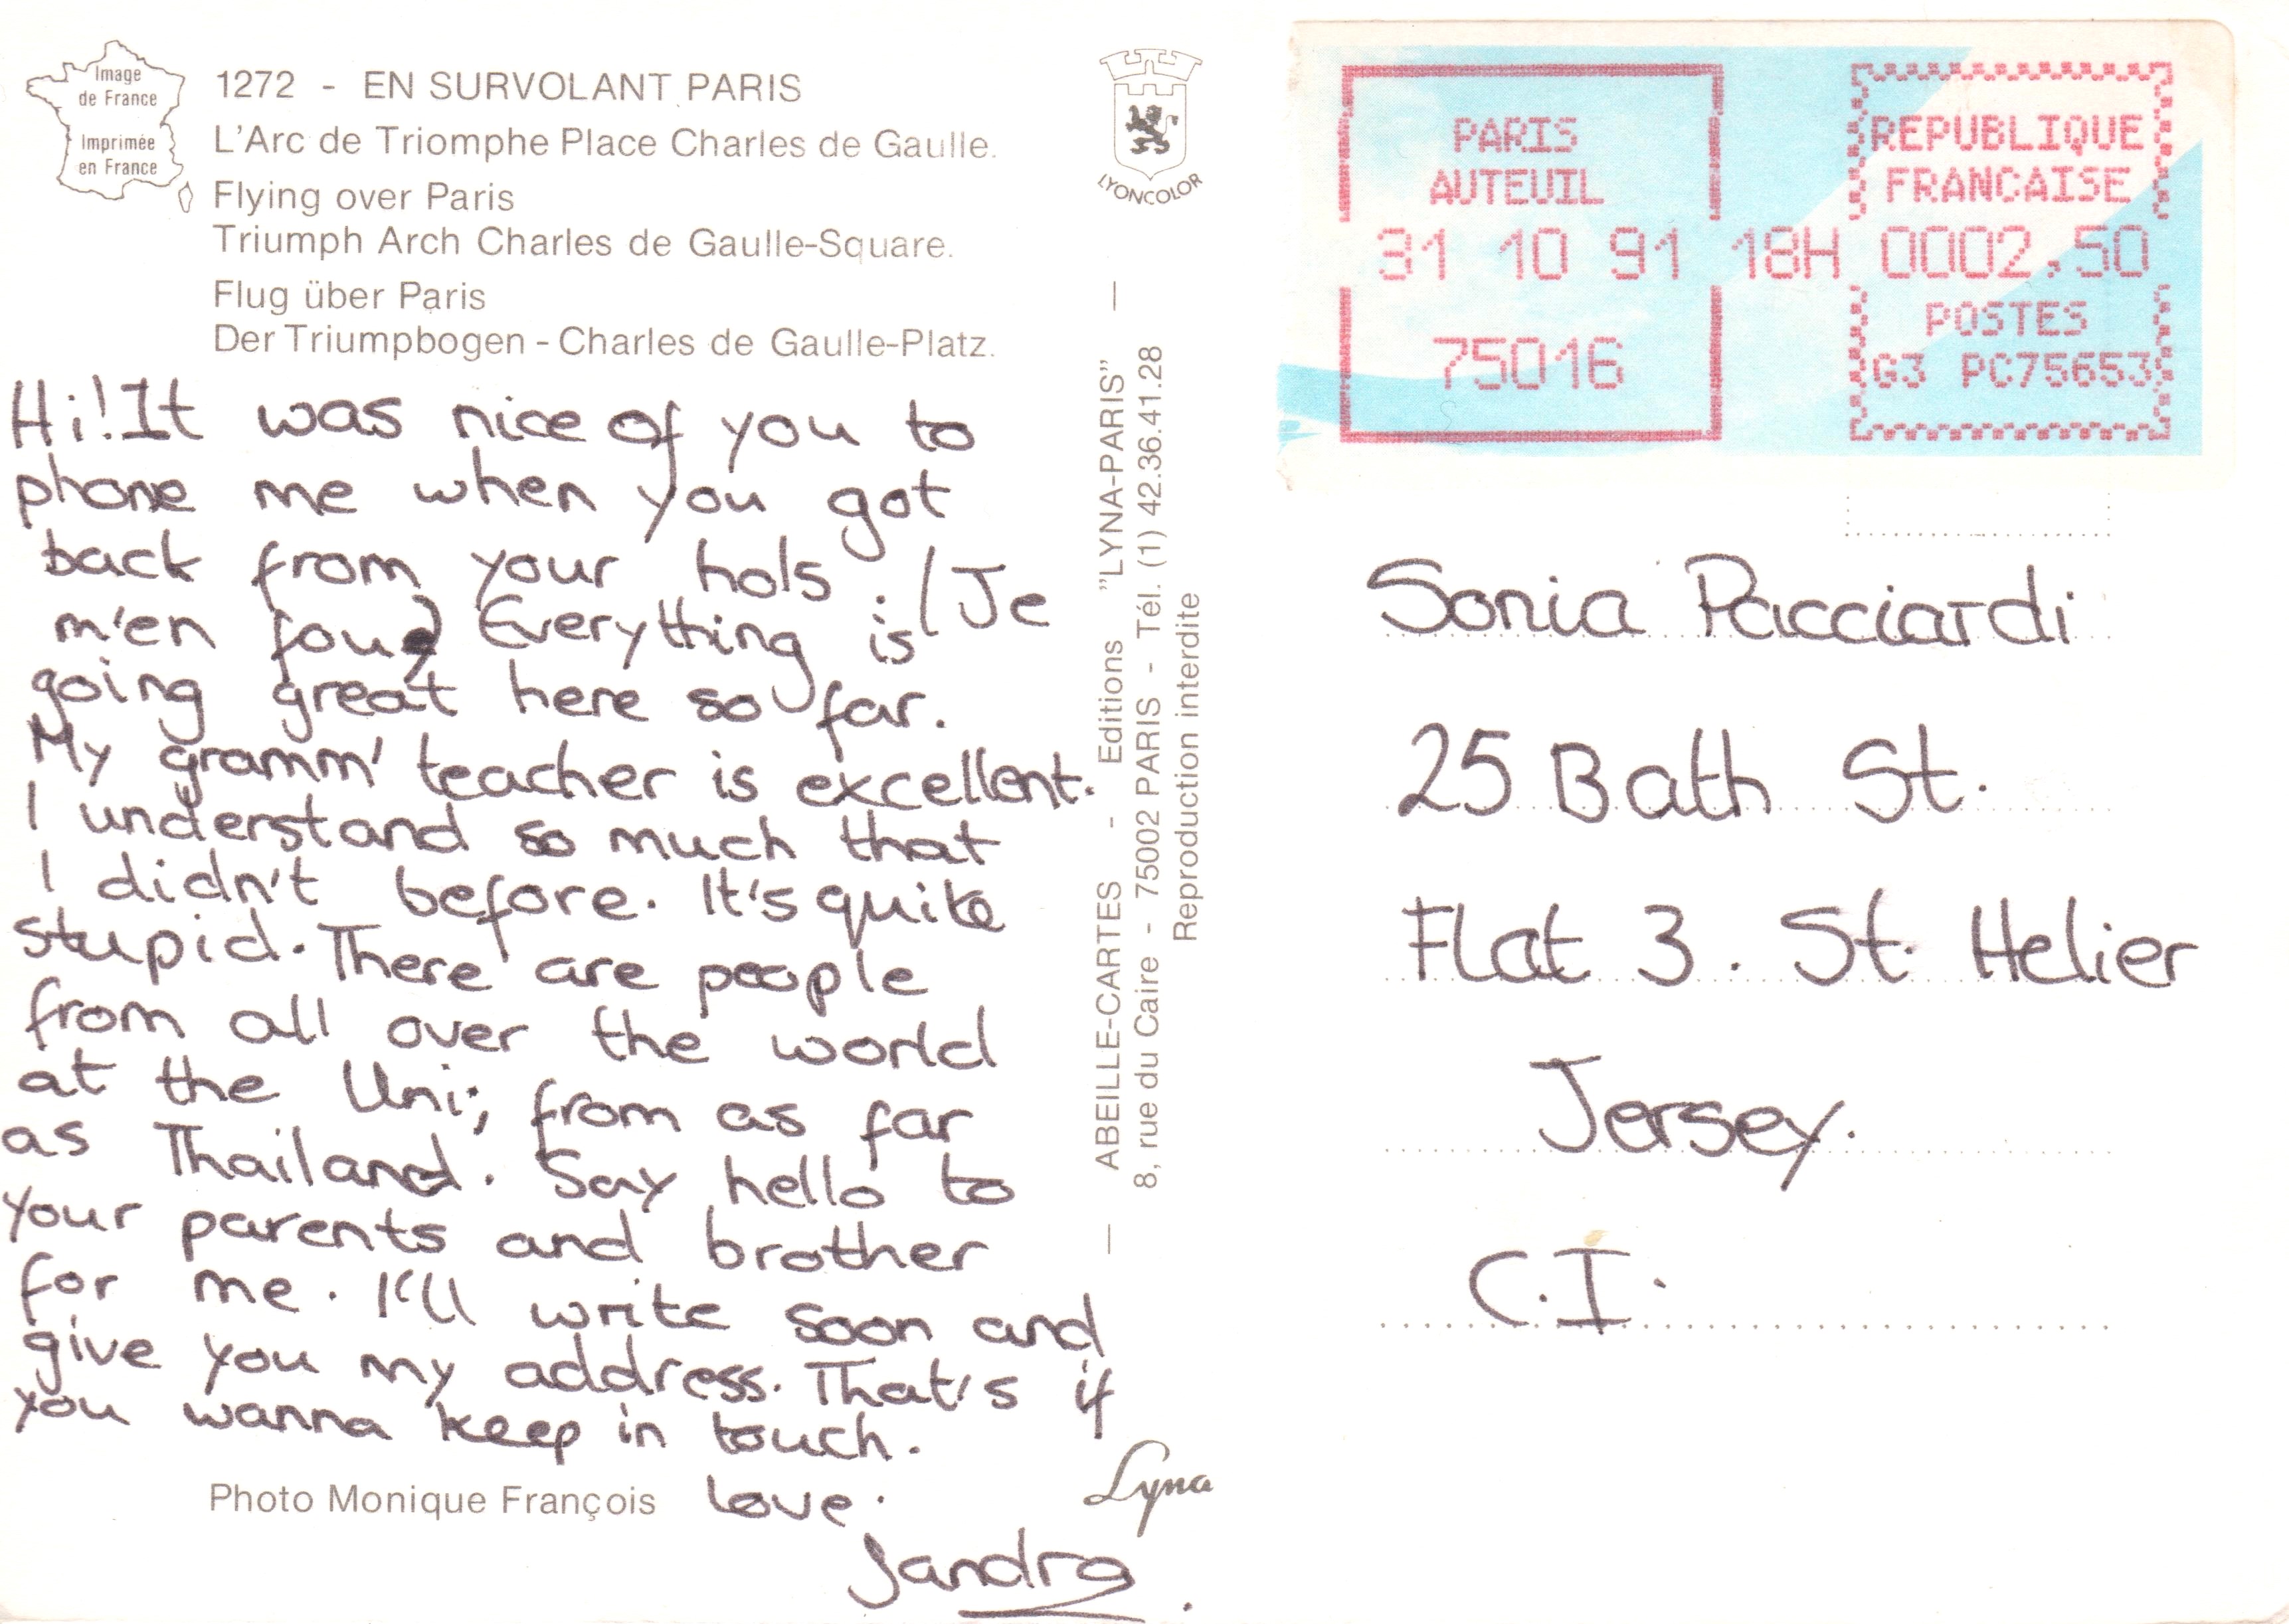 Image
de France
Imprimée
en France
1272 - EN SURVOLANT PARIS
L'Arc de Triomphe Place Charles de Gaulle.
Flying over Paris
Triumph Arch Charles de Gaulle-Square.
Flug über Paris
Der Triumpbogen - Charles de Gaulle-Platz.
Hi! It was nice of you to
phone me when you got
back from your hols. (Je
m'en fou) Everything is
going great here so far.
My gramm' teacher is excellent.
I understand so much that
I didn't before. It's quite
stupid. There are people
from all over the world
at the Uni; from as far
as Thailand. Say hello to
your parents and brother
for me. I'll write soon and
give you my address. That's if
you wanna keep in touch.
Love.
Sandra.
Photo Monique François
LYONCOLOR
ABEILLE-CARTES - Editions "LYNA-PARIS"
8, rue du Caire - 75002 PARIS - Tél. (1) 42.36.41.28
Reproduction interdite
Lyna
PARIS
AUTEUIL
31 10 91 18H
75016
REPUBLIQUE
FRANCAISE
0002,50
POSTES
G3 PC75653
Sonia Pacciardi
25 Bath St.
Flat 3. St. Helier
Jersey.
C.I.